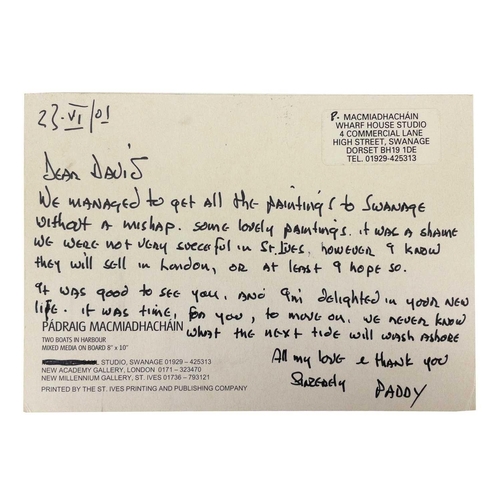 23·VI/01
P. MACMIADHACHÁIN
WHARF HOUSE STUDIO
4 COMMERCIAL LANE
HIGH STREET, SWANAGE
DORSET BH19 1DE
TEL. 01929-425313
DEAR DAVID
WE MANAGED TO GET ALL THE PAINTINGS TO SWANAGE
WITHOUT A MISHAP. SOME LOVELY PAINTINGS. IT WAS A SHAME
WE WERE NOT VERY SUCCESFUL IN ST. IVES. HOWEVER I KNOW
THEY WILL SELL IN LONDON, OR AT LEAST I HOPE SO.
IT WAS GOOD TO SEE YOU, AND I'M DELIGHTED IN YOUR NEW
LIFE. IT WAS TIME, FOR YOU, TO MOVE ON. WE NEVER KNOW
WHAT THE NEXT TIDE WILL WASH ASHORE
PÁDRAIG MACMIADHACHÁIN
TWO BOATS IN HARBOUR
MIXED MEDIA ON BOARD 8" x 10"
STUDIO, SWANAGE 01929 – 425313
NEW ACADEMY GALLERY, LONDON 0171 – 323470
NEW MILLENNIUM GALLERY, ST. IVES 01736 – 793121
PRINTED BY THE ST. IVES PRINTING AND PUBLISHING COMPANY
All my love & THANK YOU
SINZERELY
PADDY